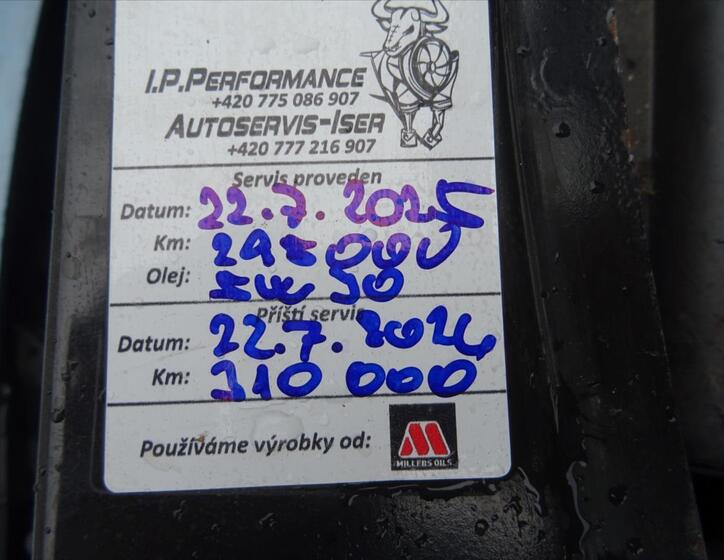 I.P.Performance
+420 775 086 907
Autoservis-Iser
+420 777 216 907
Servis proveden
Datum: 22.7.2025
Km: 295 000
Olej: 5w30
Příští servis
Datum: 22.7.2026
Km: 310 000
Používáme výrobky od:
MILLERS OILS